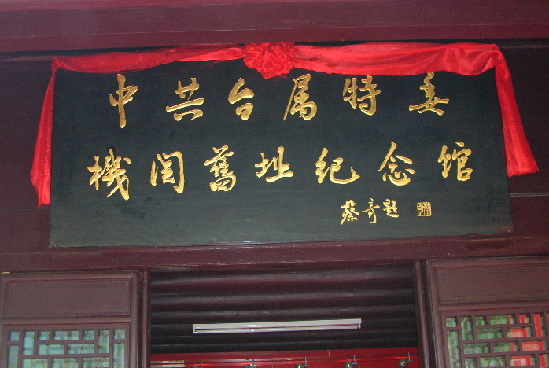 中共台属特委
機関舊址纪念館
蔡奇题